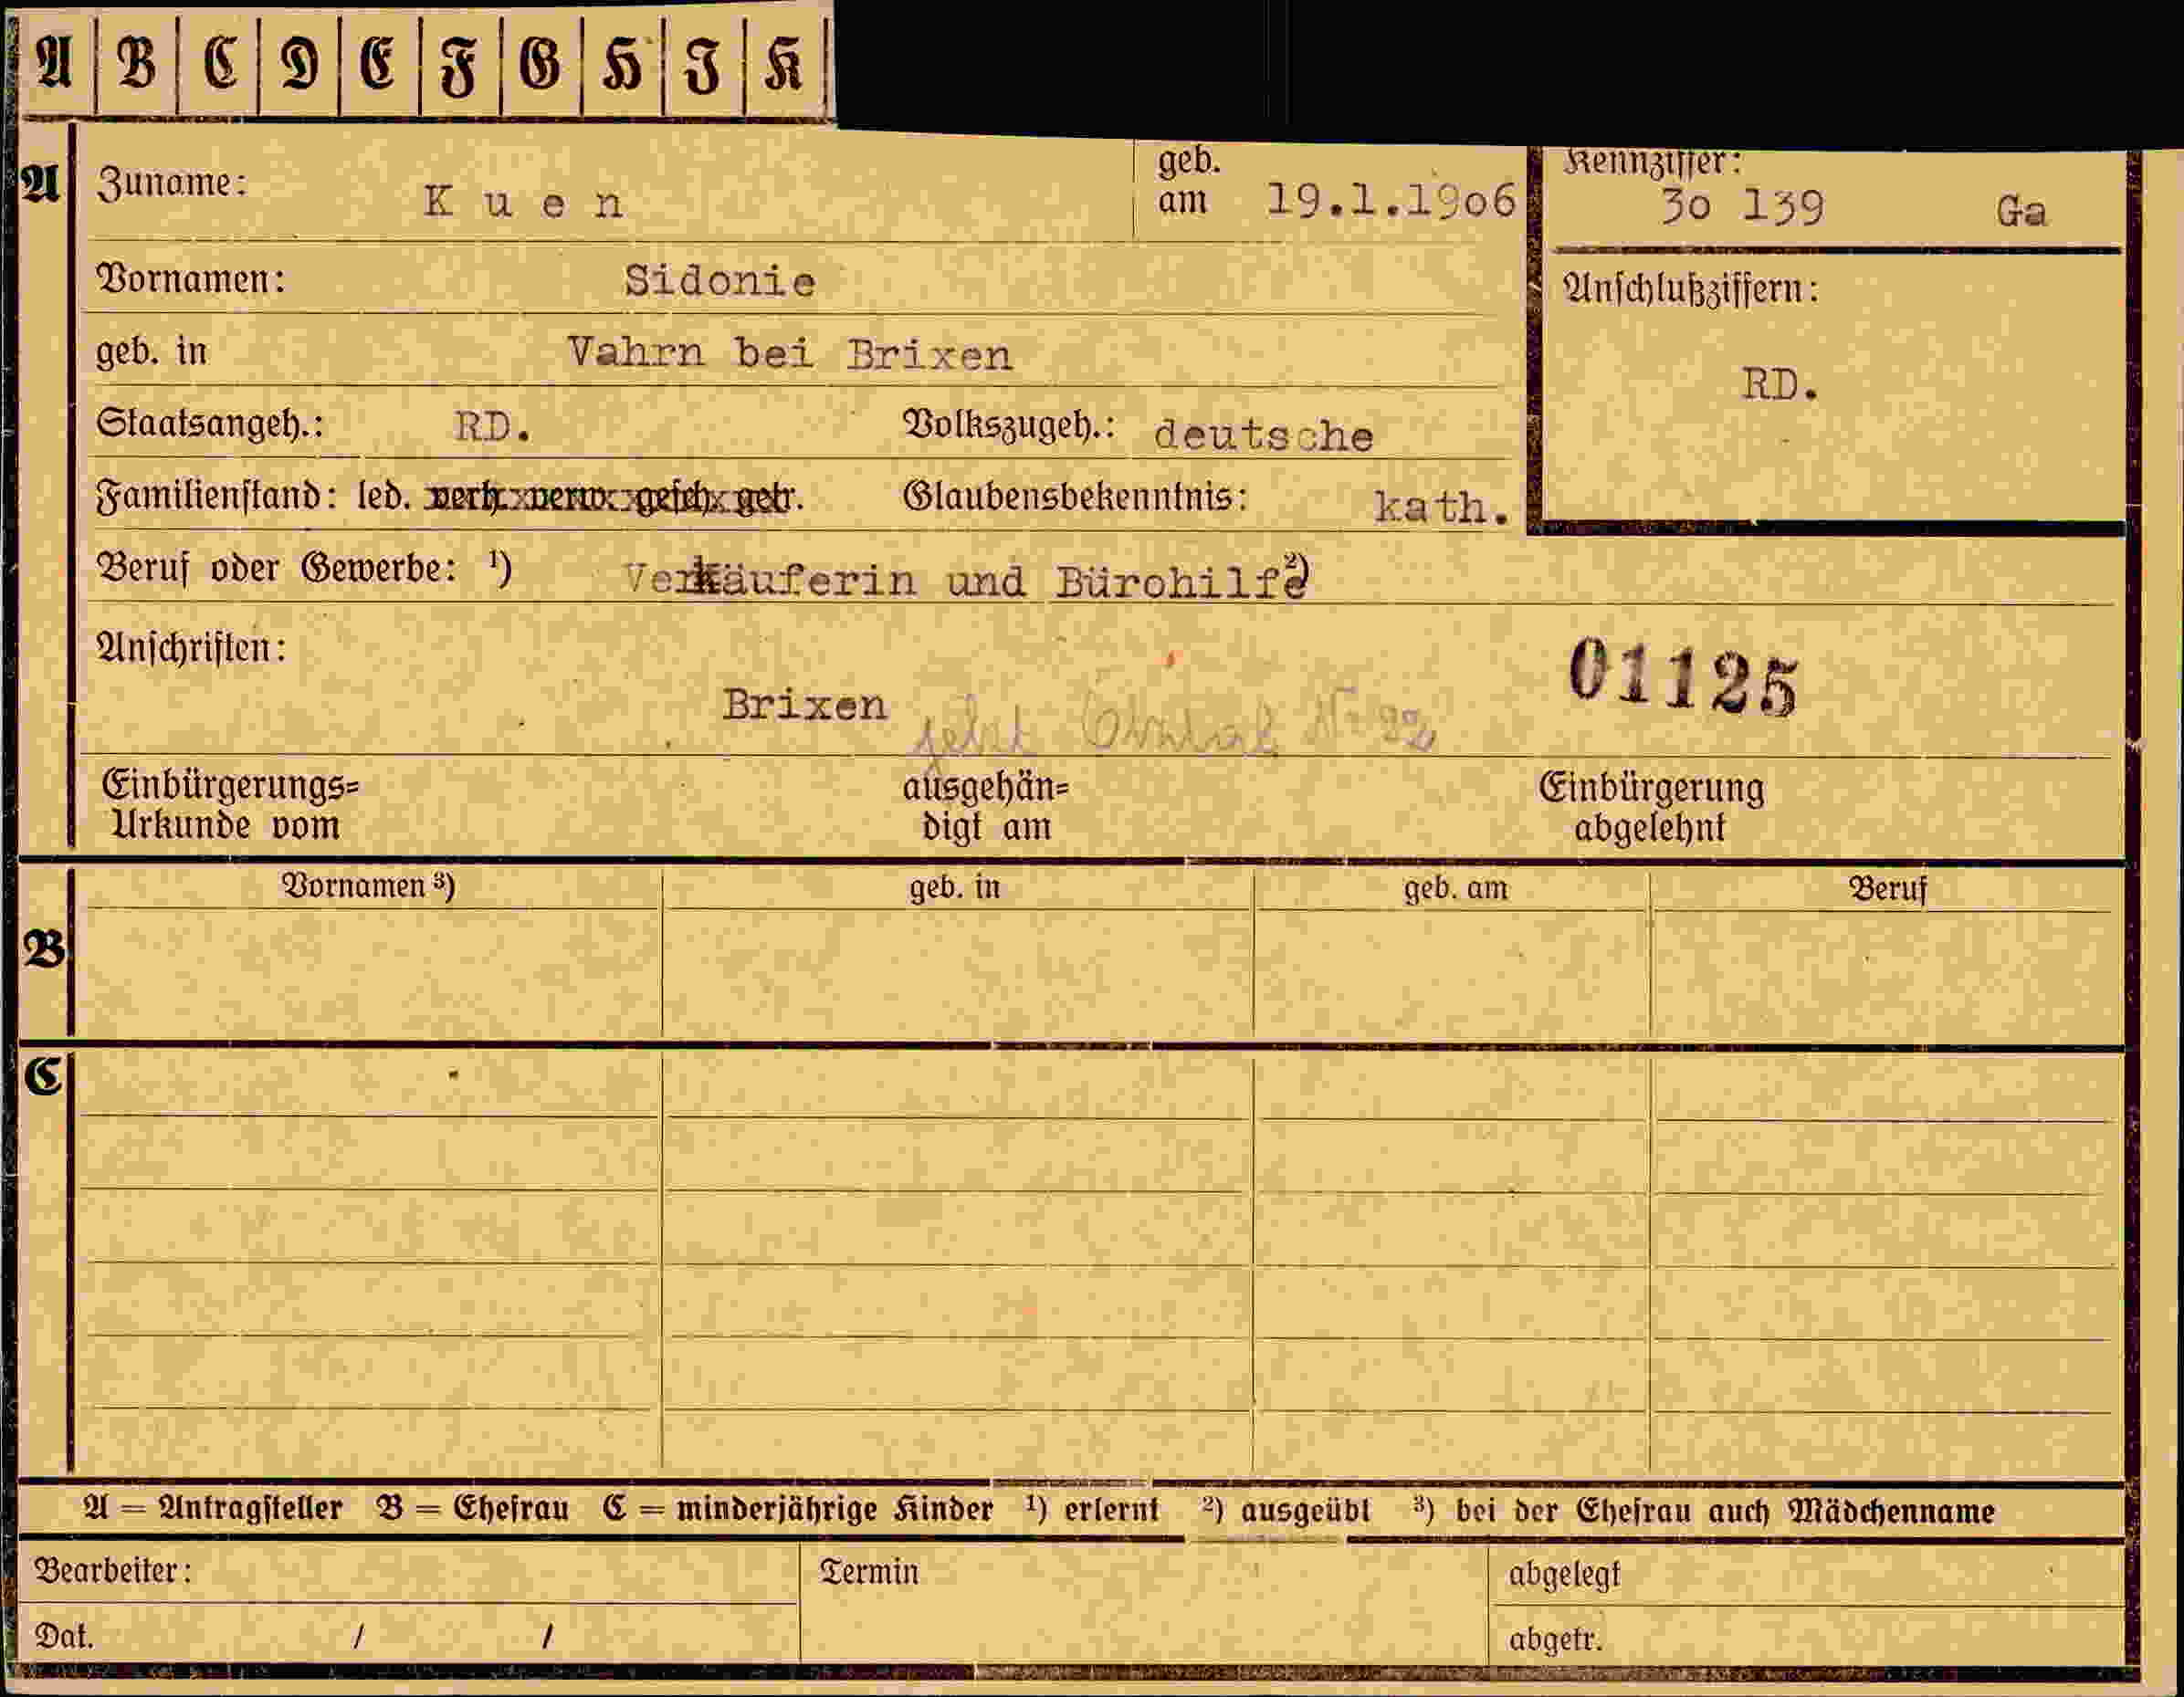 A B C D E F G H I K
A
Zuname: Kuen geb. am 19.1.1906
Kennziffer: 30 139 Ga
Vornamen: Sidonie
Anschlußziffern:
geb. in Vahrn bei Brixen
RD.
Staatsangeh.: RD. Volkszugeh.: deutsche
Familienstand: led. verh. verw. gesch. getr. Glaubensbekenntnis: kath.
Beruf oder Gewerbe: ¹) Verkäuferin und Bürohilfe ²)
Anschriften:
01125
Brixen jetzt Nr 22
Einbürgerungs= ausgehän= Einbürgerung
Urkunde vom digt am abgelehnt
Vornamen ³) geb. in geb. am Beruf
B
C
A = Antragsteller B = Ehefrau C = minderjährige Kinder ¹) erlernt ²) ausgeübt ³) bei der Ehefrau auch Mädchenname
Bearbeiter: Termin abgelegt
Dat. / / abgetr.